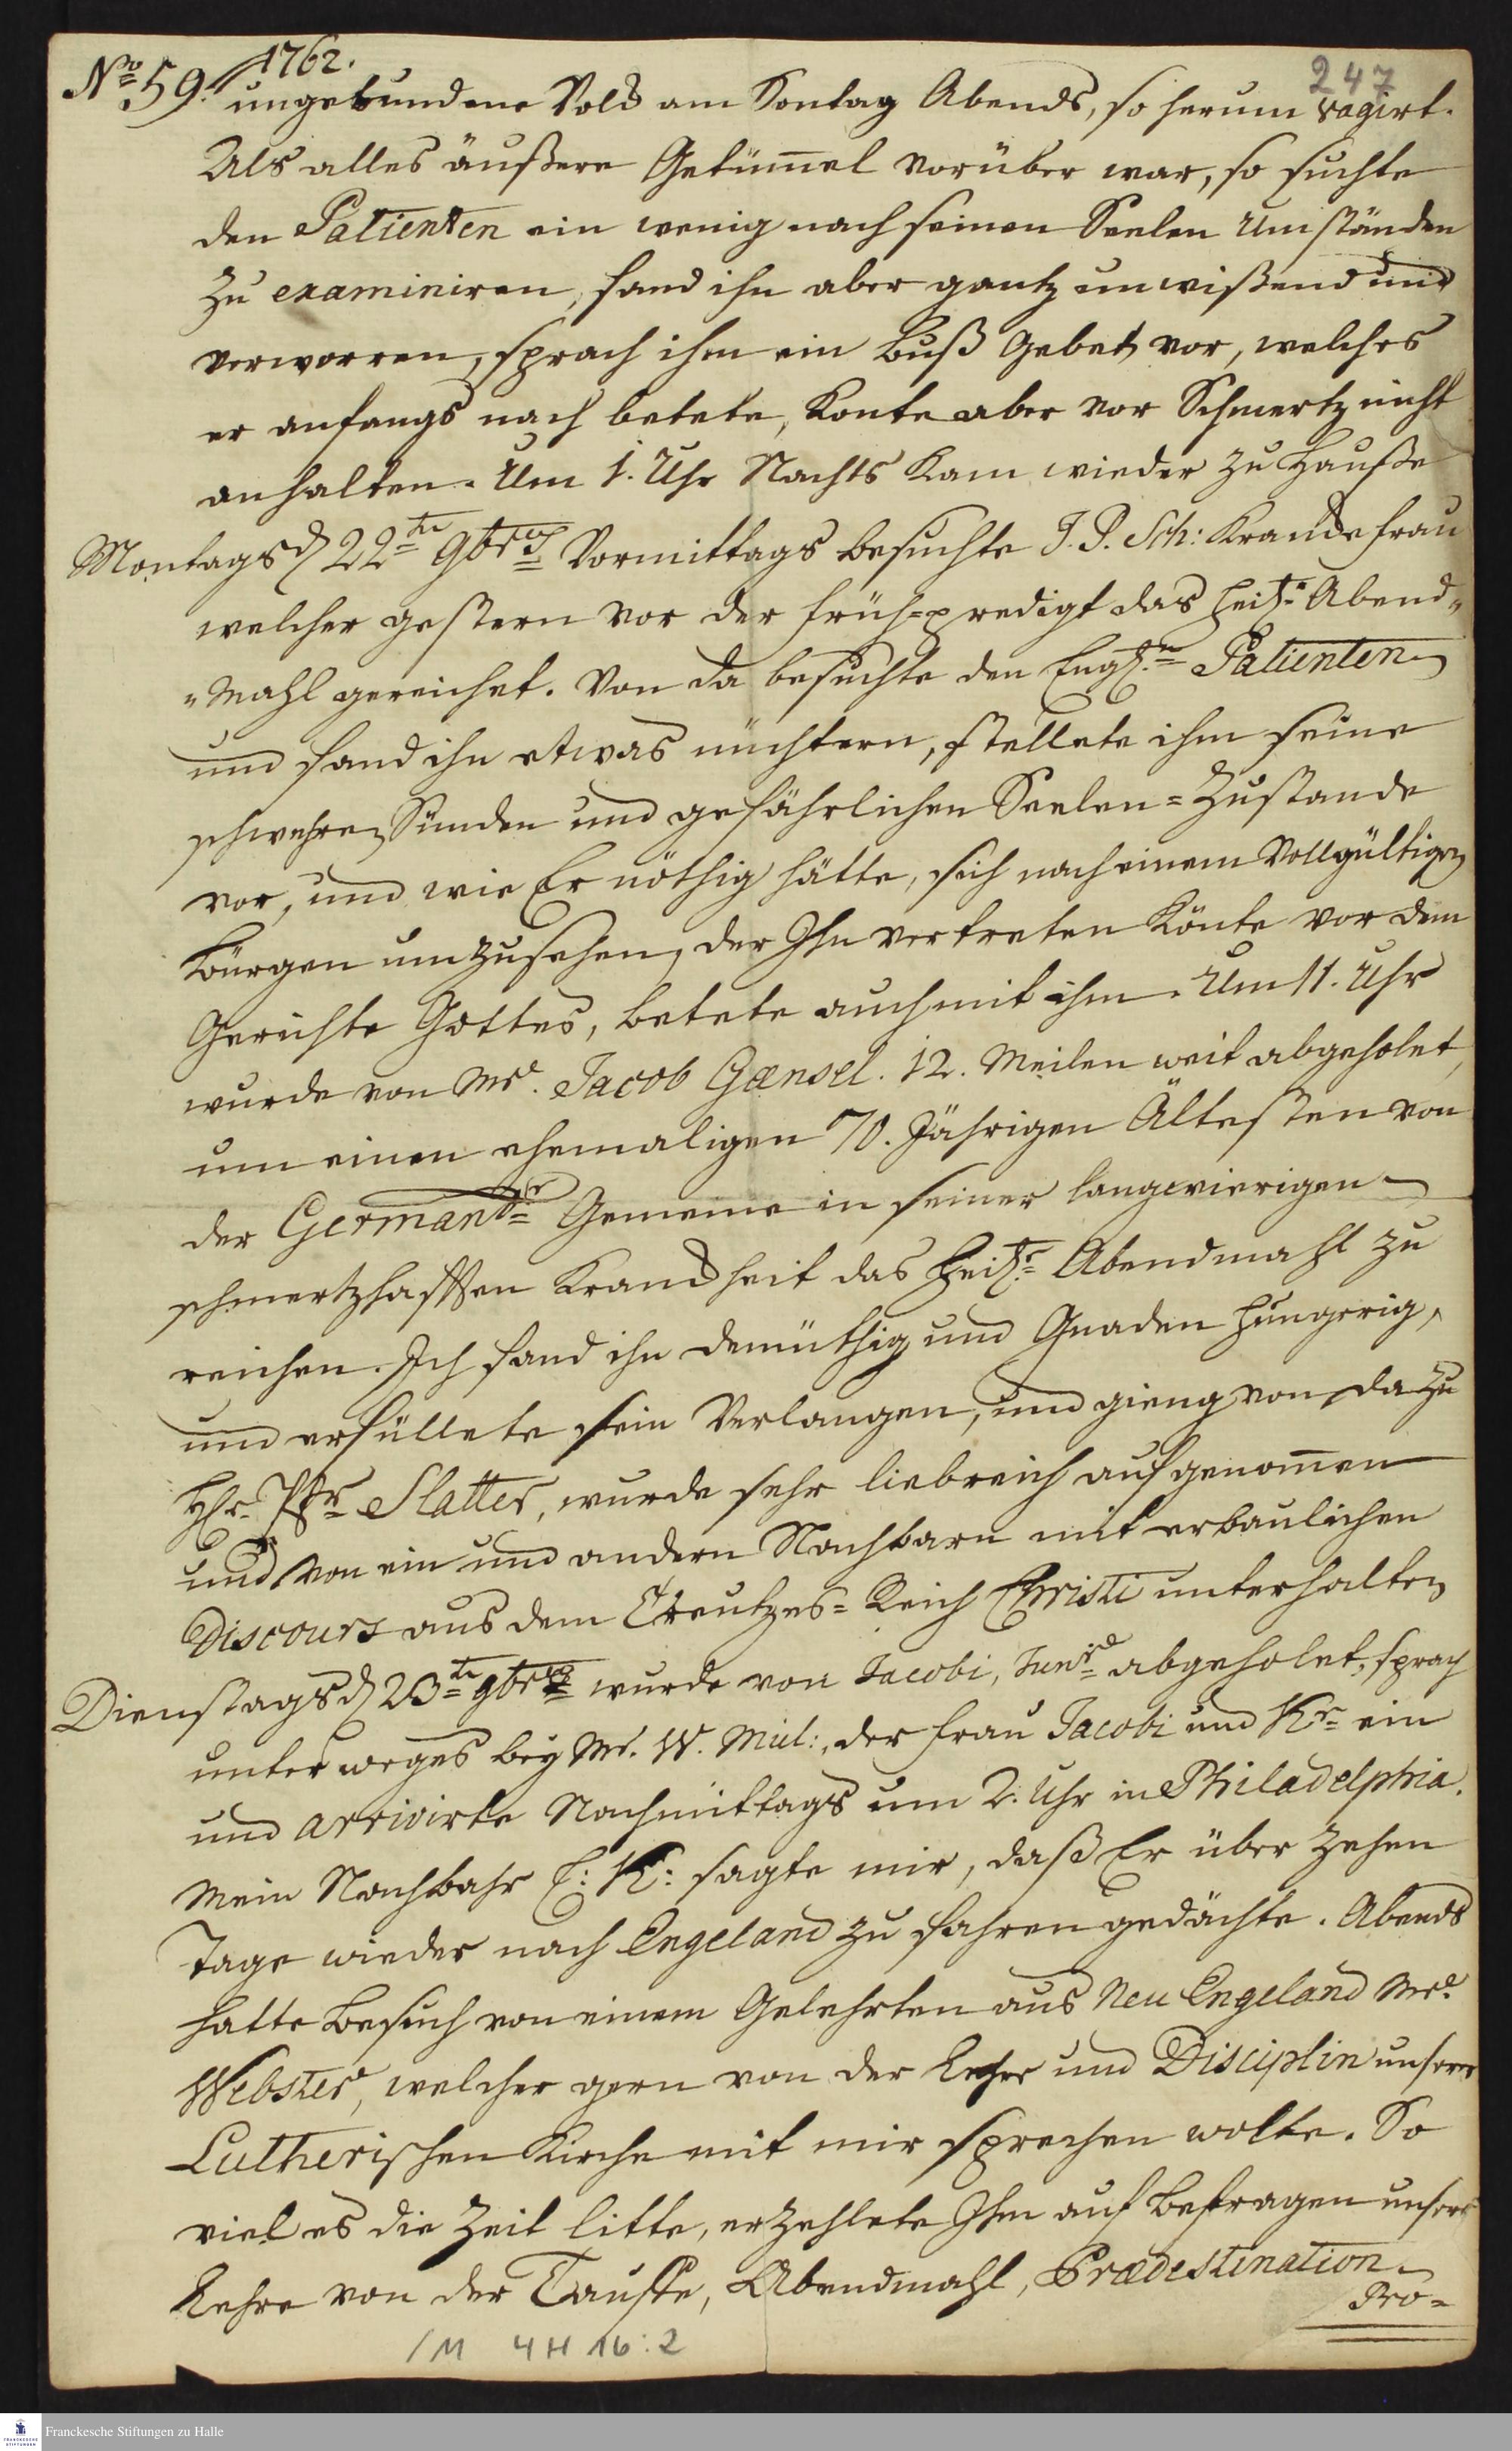 No 59. 1762.
247
ungebundene Volck am Sontag Abends, so herum vagirt.
Als alles äußere Getüm̄el vorüber war, so suchte
den Patienten ein wenig nach seinen Seelen Umständen
zu examiniren, fand ihn aber gantz unwißend und
verworren, sprach ihm ein Buß Gebet vor, welches
er anfangs nach betete, konte aber vor Schmertz nicht
anhalten. Um 1. Uhr Nachts kam wieder zu Hauße
Montags d 22te 9bris Vormittags besuchte J. P. Sch: krancke Frau
welcher gestern vor der früh=predigt das heil. Abend„
„Mahl gereichet. Von da besuchte den Engl.n Patienten
und fand ihn etwas nüchtern, stellete ihm seine
schwehren Sünden und gefährlichen Seelen=Zustande
vor, und wie Er nöthig hätte, sich nach einem Vollgültigen
Bürgen umzusehen, der Ihn vertreten könte vor dem
Gerichte Gottes, betete auch mit ihm. Um 11. Uhr
wurde von Mr. Jacob Gænsel. 12. Meilen weit abgeholet,
um einen ehemaligen 70. Jährigen Ältesten von
der Germantr Gemeine in seiner langwierigen
schmertzhafften Kranckheit das Heil. Abendmahl zu
reichen. Ich fand ihn demüthig und Gnaden hungerig,
und erfüllete sein Verlangen, und gieng von da zu
Hr. Pfr Slatter, wurde sehr liebreich aufgenom̄en
und von ein und andern Nachbarn mit erbaulichen
Discours aus dem Creutzes=Reich Christi unterhalten
Dienstags d 23te 9bris wurde von Jacobi, Junr abgeholet, sprach
unterweges bey Mr. W. Mül:, der Frau Jacobi und Kr ein
und arrivirte Nachmittags um 2. Uhr in Philadelphia.
Mein Nachbahr E: K: sagte mir, daß Er über zehen
Tage wieder nach Engeland zu fahren gedächte. Abends
hatte Besuch von einem Gelehrten aus Neu Engeland Mr.
Webster, welcher gern von der Lehre und Disciplin unserer
Lutherischen Kirche mit mir sprechen wolte. So
viel es die Zeit litte, erzehlete Ihm auf Befragen unsere
Lehre von der Tauffe, Abendmahl, Prædestination
Pro=
/M 4 H 16 : 2
Franckesche Stiftungen zu Halle